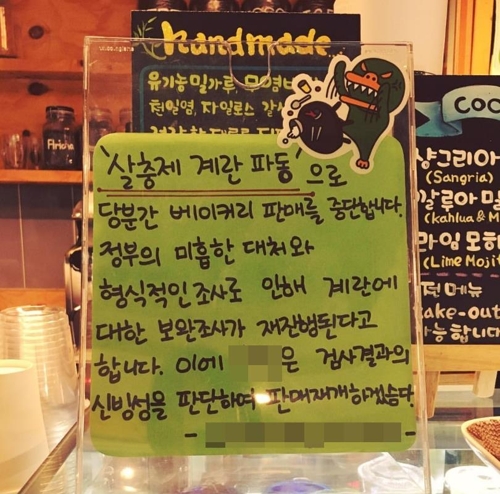 handmade
유기농밀가루, 무염버
천일염, 자일로스
Aricha
'살충제 계란 파동'으로
당분간 베이커리 판매를 중단합니다.
정부의 미흡한 대처와
형식적인 조사로 인해 계란에
대한 보완조사가 재진행된다고
합니다. 이에 은 검사결과의
신빙성을 판단하여 판매재개하겠습니다.
COC
샹그리아
(Sangria)
깔루아 밀
(Kahlua & M
라임 모히
(Lime Mojit
전 메뉴
take-out
가능합니다